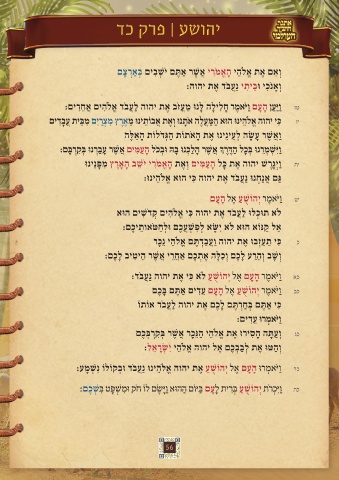 יהושע | פרק כד
וְאִם אֶת אֱלֹהֵי הָאֱמֹרִי אֲשֶׁר אַתֶּם יֹשְׁבִים בְּאַרְצָם
וְאָנֹכִי וּבֵיתִי נַעֲבֹד אֶת יהוה:
טז וַיַּעַן הָעָם וַיֹּאמֶר חָלִילָה לָּנוּ מֵעֲזֹב אֶת יהוה לַעֲבֹד אֱלֹהִים אֲחֵרִים:
יז כִּי יהוה אֱלֹהֵינוּ הוּא הַמַּעֲלֶה אֹתָנוּ וְאֶת אֲבוֹתֵינוּ מֵאֶרֶץ מִצְרַיִם מִבֵּית עֲבָדִים
וַאֲשֶׁר עָשָׂה לְעֵינֵינוּ אֶת הָאֹתוֹת הַגְּדֹלוֹת הָאֵלֶּה
וַיִּשְׁמְרֵנוּ בְּכָל הַדֶּרֶךְ אֲשֶׁר הָלַכְנוּ בָהּ וּבְכֹל הָעַמִּים אֲשֶׁר עָבַרְנוּ בְּקִרְבָּם:
יח וַיְגָרֶשׁ יהוה אֶת כָּל הָעַמִּים וְאֶת הָאֱמֹרִי יֹשֵׁב הָאָרֶץ מִפָּנֵינוּ
גַּם אֲנַחְנוּ נַעֲבֹד אֶת יהוה כִּי הוּא אֱלֹהֵינוּ:
יט וַיֹּאמֶר יְהוֹשֻׁעַ אֶל הָעָם
לֹא תוּכְלוּ לַעֲבֹד אֶת יהוה כִּי אֱלֹהִים קְדֹשִׁים הוּא
אֵל קַנּוֹא הוּא לֹא יִשָּׂא לְפִשְׁעֲכֶם וּלְחַטֹּאותֵיכֶם:
כ כִּי תַעַזְבוּ אֶת יהוה וַעֲבַדְתֶּם אֱלֹהֵי נֵכָר
וְשָׁב וְהֵרַע לָכֶם וְכִלָּה אֶתְכֶם אַחֲרֵי אֲשֶׁר הֵיטִיב לָכֶם:
כא וַיֹּאמֶר הָעָם אֶל יְהוֹשֻׁעַ לֹא כִּי אֶת יהוה נַעֲבֹד:
כב וַיֹּאמֶר יְהוֹשֻׁעַ אֶל הָעָם עֵדִים אַתֶּם בָּכֶם
כִּי אַתֶּם בְּחַרְתֶּם לָכֶם אֶת יהוה לַעֲבֹד אוֹתוֹ
וַיֹּאמְרוּ עֵדִים:
כג וְעַתָּה הָסִירוּ אֶת אֱלֹהֵי הַנֵּכָר אֲשֶׁר בְּקִרְבְּכֶם
וְהַטּוּ אֶת לְבַבְכֶם אֶל יהוה אֱלֹהֵי יִשְׂרָאֵל:
כד וַיֹּאמְרוּ הָעָם אֶל יְהוֹשֻׁעַ אֶת יהוה אֱלֹהֵינוּ נַעֲבֹד וּבְקוֹלוֹ נִשְׁמָע:
כה וַיִּכְרֹת יְהוֹשֻׁעַ בְּרִית לָעָם בַּיּוֹם הַהוּא וַיָּשֶׂם לוֹ חֹק וּמִשְׁפָּט בִּשְׁכֶם:
56